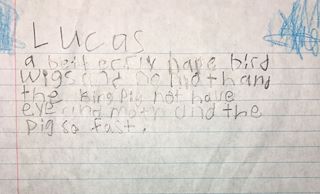 Lucas
a bett erfly have bird
wigs and no
the King pig not have
eye and moth and the
pig so fast.